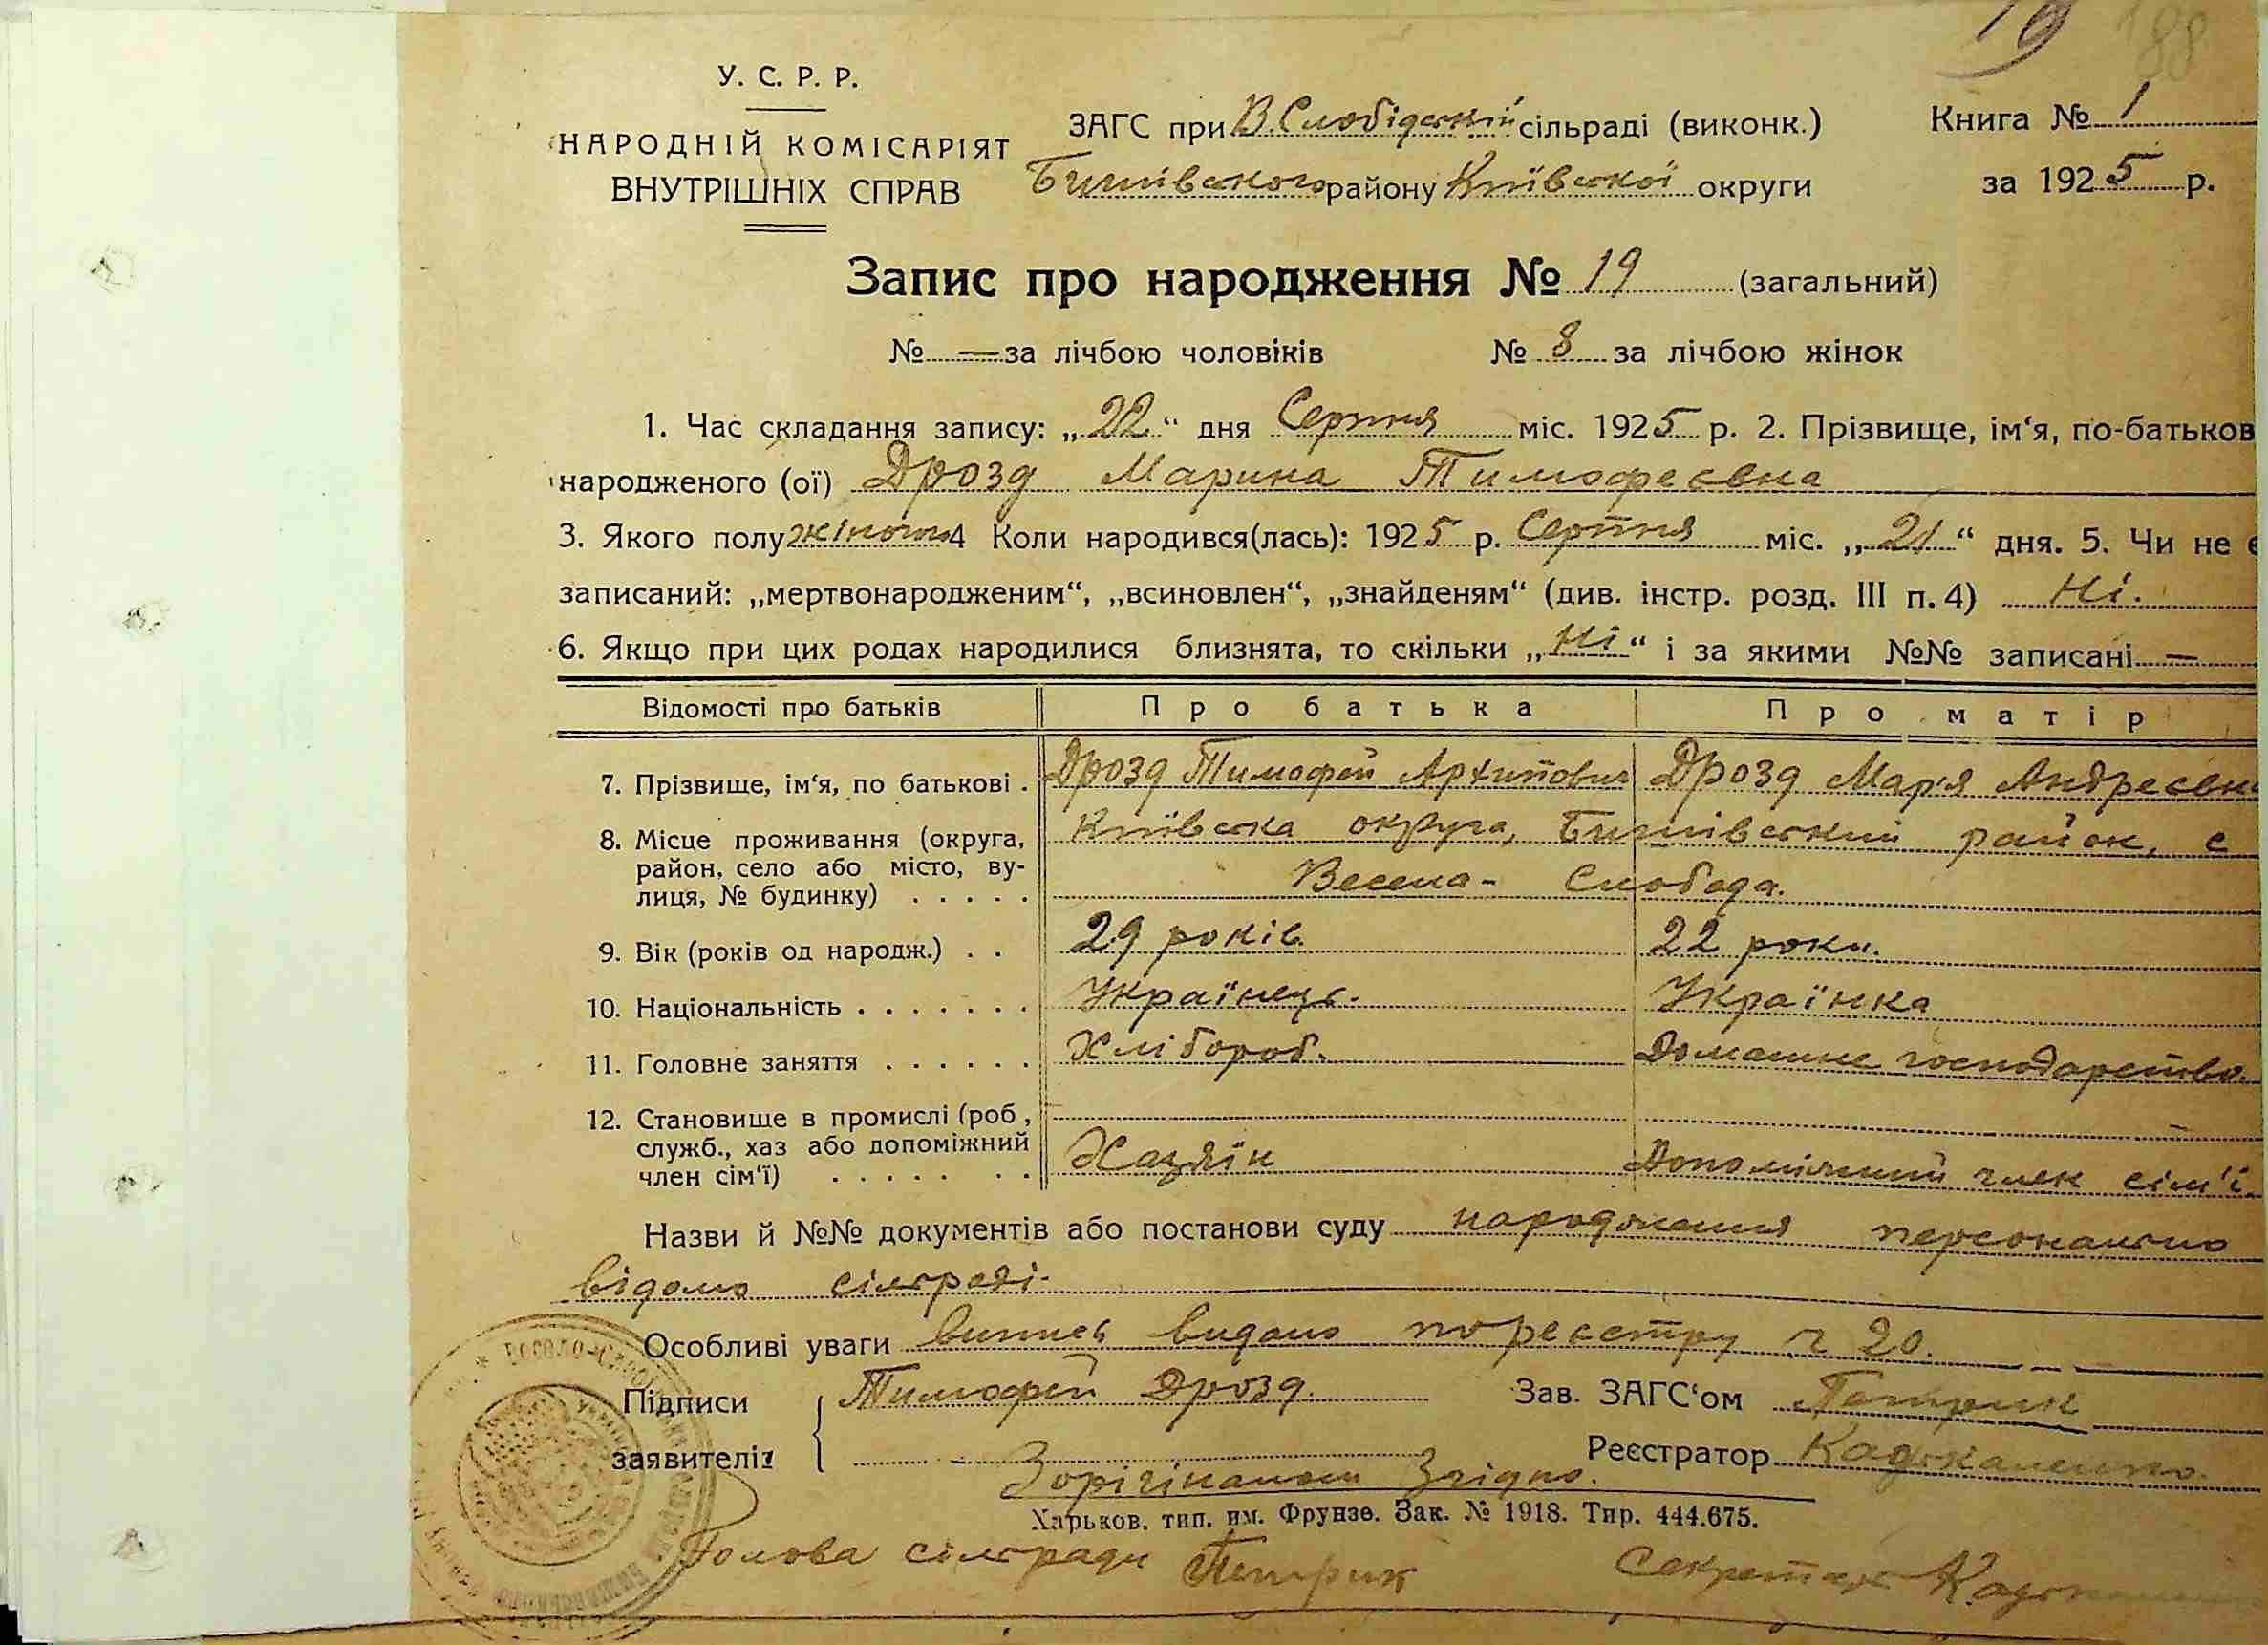 19 188
У. С. Р. Р.
НАРОДНІЙ КОМІСАРІЯТ
ВНУТРІШНІХ СПРАВ
ЗАГС при В.Слобідській сільраді (виконк.)
Бишівського району Київської округи
Книга № 1
за 1925 р.
Запис про народження № 19 (загальний)
№ — за лічбою чоловіків № 8 за лічбою жінок
1. Час складання запису: „22“ дня Серпня міс. 1925 р. 2. Прізвище, ім‘я, по-батьков
народженого (ої) Дрозд Марина Тимофеєвна
3. Якого полу жіночий 4 Коли народився(лась): 1925 р. Серпня міс. „21“ дня. 5. Чи не є
записаний: „мертвонародженим“, „всиновлен“, „знайденям“ (див. інстр. розд. III п. 4) Ні.
6. Якщо при цих родах народилися близнята, то скільки „Ні“ і за якими №№ записані —
Відомості про батьків Про батька Про матір
7. Прізвище, ім‘я, по батькові . Дрозд Тимофей Архипович Дрозд Мар'я Андреєвн
8. Місце проживання (округа, Київська округа, Бишівський район, с
район, село або місто, ву-
лиця, № будинку) . . . . . Весела - Слобода.
9. Вік (років од народж.) . . 29 років. 22 роки.
10. Національність . . . . . . . Українець. Українка
11. Головне заняття . . . . . . Хлібороб. Домашнє господарство.
12. Становище в промислі (роб,
служб., хаз або допоміжний Хазяїн Допоміжний член сім'ї.
член сім‘ї) . . . . . . .
Назви й №№ документів або постанови суду народження персонально
відомо сільраді.
Особливі уваги випись видано по реєстру ч 20.
Підписи Тимофей Дрозд. Зав. ЗАГС‘ом Петрик
заявителів Реєстратор
З орігіналом Згідно.
Харьков. тип. им. Фрунзе. Зак. № 1918. Тир. 444.675.
Голова сільради Петрик Секретарь